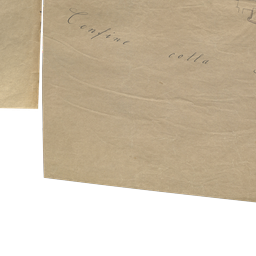 Confine colla